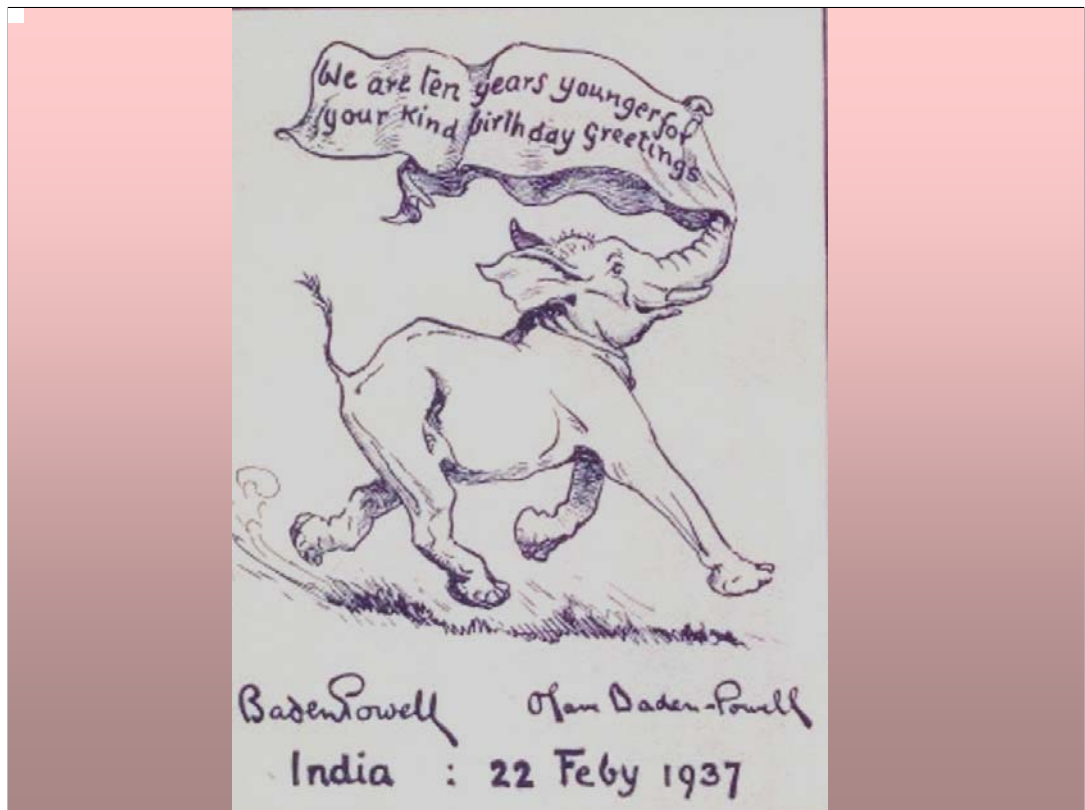 We are ten years younger for
your kind birthday greetings
Baden Powell
Olave Baden-Powell
India : 22 Feby 1937